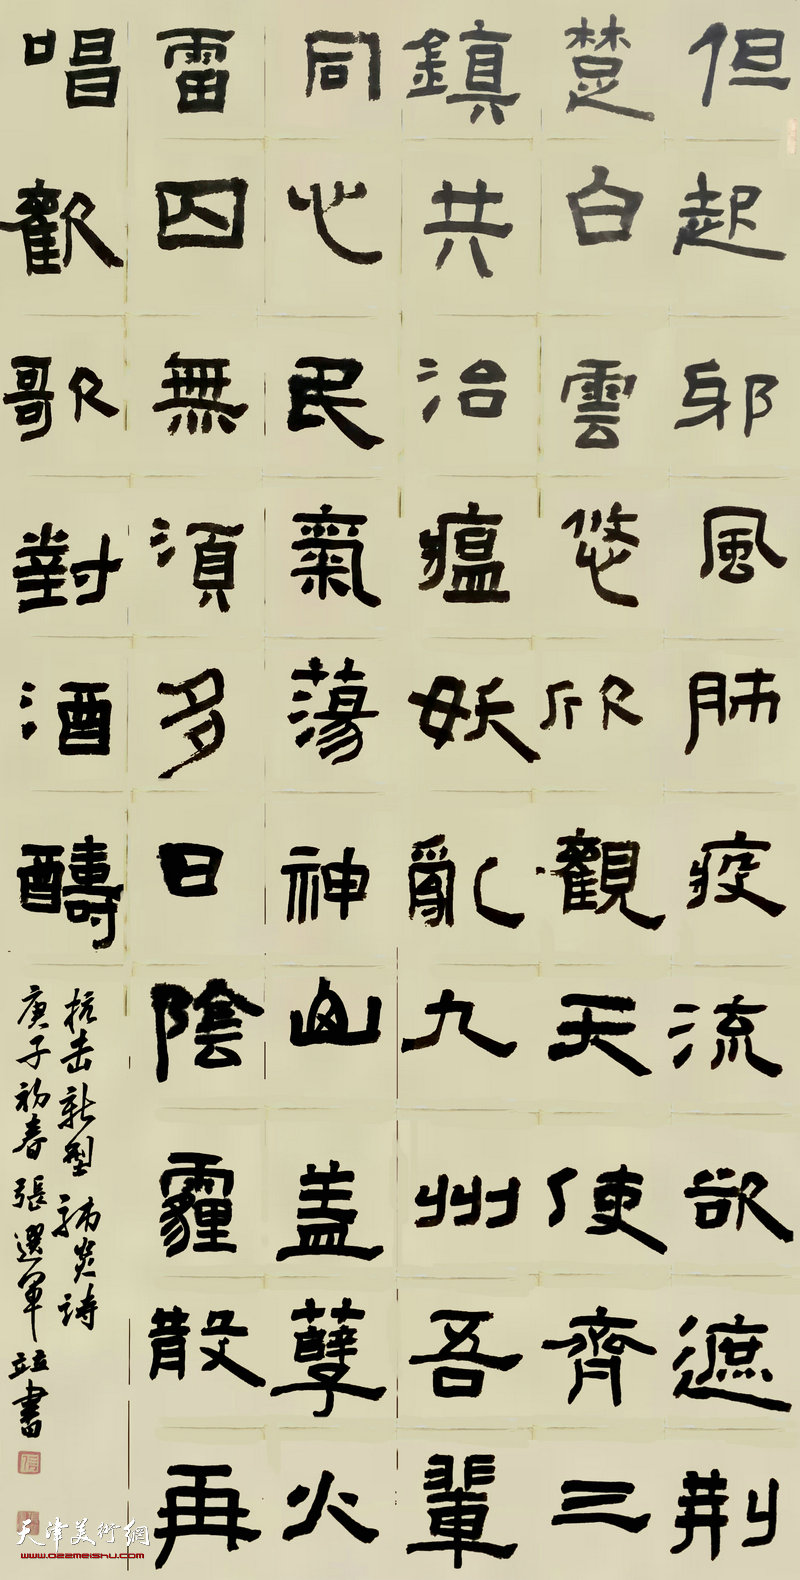 但起邪風肺疫流欲遮荊
楚白雲悠欣觀天使齊三
鎮共治瘟妖亂九州吾輩
同心民氣蕩神山蓋孽火
雷囚無須多日陰霾散再
唱歡歌對酒醻
抗击新型肺炎詩
庚子初春張選軍竝書
天津美術網
www.022meishu.com